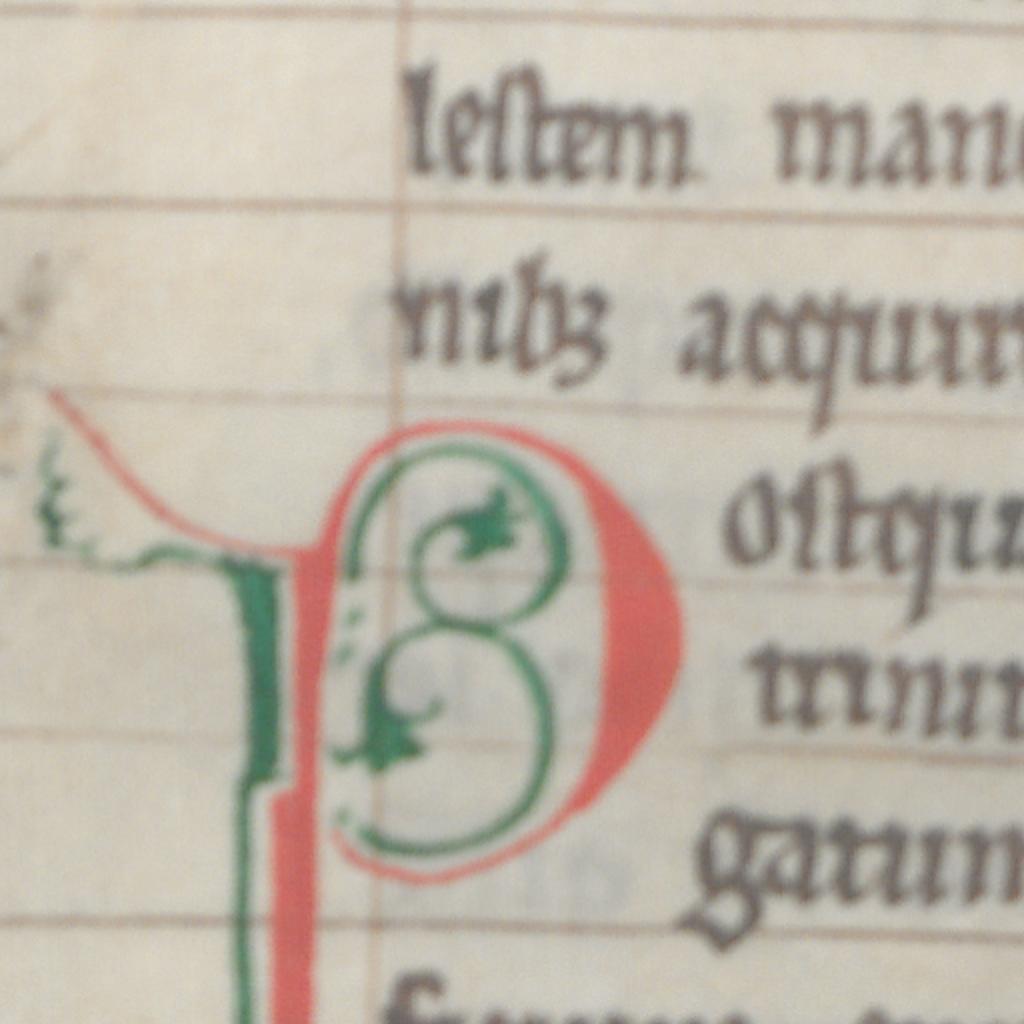 leſtem man
nibꝫ acquir
Poſtqu
trinit
gatum